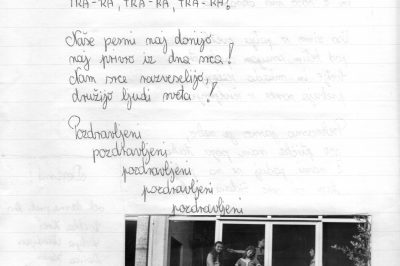 TRA-RA, TRA-RA, TRA-RA!
Naše pesmi naj donijo
naj prvro iz dna srca!
Nam srca razveselijo,
družijo ljudi sveta!
Pozdravljeni
pozdravljeni
pozdravljeni
pozdravljeni
pozdravljeni